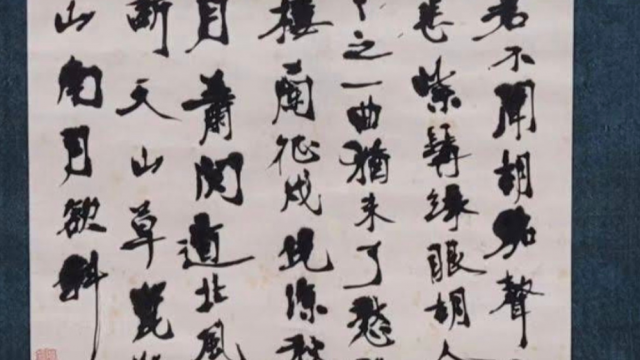 君不聞胡笳聲
悲紫髯綠眼胡人
之一曲猶未了愁
樓蘭征戍兒涼秋
月蕭關道北風
斷天山草崑
山南月欲斜